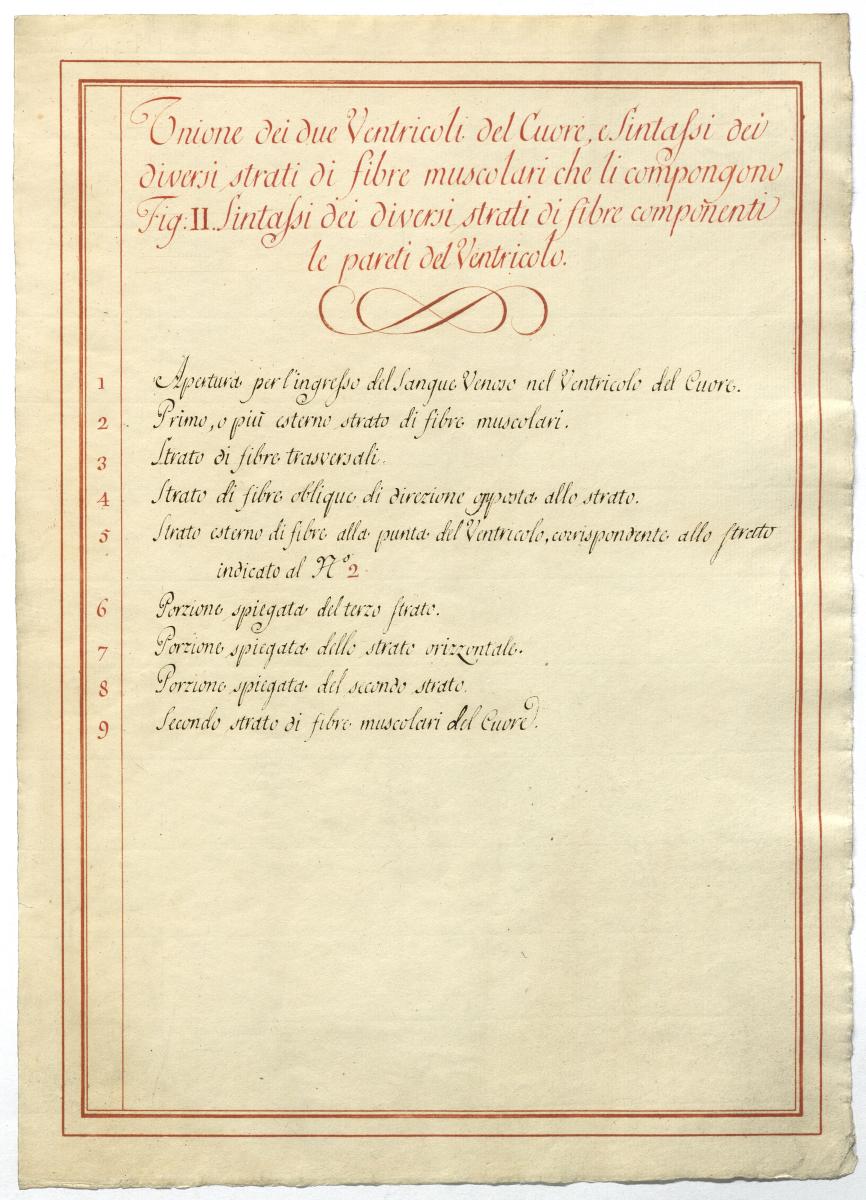 Unione dei due Ventricoli del Cuore, e Sintassi dei
diversi strati di fibre muscolari che li compongono
Fig: II. Sintassi dei diversi strati di fibre componenti
le pareti del Ventricolo.
1 Apertura per l'ingresso del Sangue Venoso nel Ventricolo del Cuore.
2 Primo, o più esterno strato di fibre muscolari.
3 Strato di fibre trasversali.
4 Strato di fibre oblique di direzione opposta allo strato.
5 Strato esterno di fibre alla punta del Ventricolo, corrispondente allo strato
indicato al N.º 2
6 Porzione spiegata del terzo strato.
7 Porzione spiegata dello strato orizzontale.
8 Porzione spiegata del secondo strato.
9 Secondo strato di fibre muscolari del Cuore.